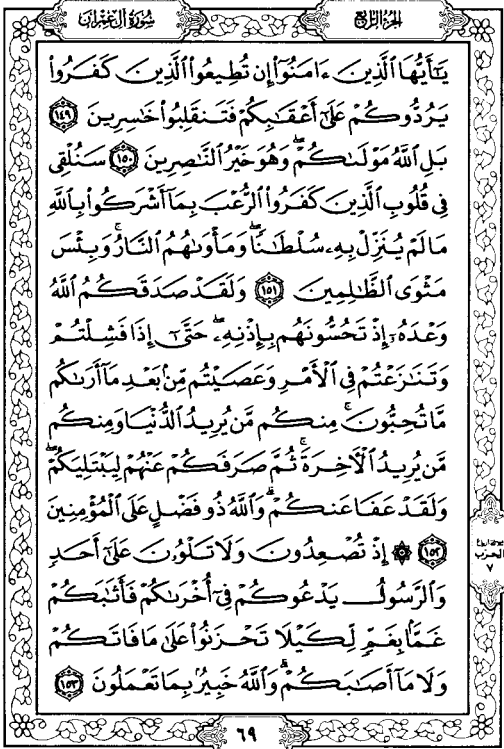 سُورَةُ آلِ عِمْرَانَ
الجُزْءُ الرَّابِعُ
يَـٰٓأَيُّهَا ٱلَّذِينَ ءَامَنُوٓا۟ إِن تُطِيعُوا۟ ٱلَّذِينَ كَفَرُوا۟
يَرُدُّوكُمْ عَلَىٰٓ أَعْقَـٰبِكُمْ فَتَنقَلِبُوا۟ خَـٰسِرِينَ ١٤٩
بَلِ ٱللَّهُ مَوْلَىٰكُمْ ۖ وَهُوَ خَيْرُ ٱلنَّـٰصِرِينَ ١٥٠ سَنُلْقِى
فِى قُلُوبِ ٱلَّذِينَ كَفَرُوا۟ ٱلرُّعْبَ بِمَآ أَشْرَكُوا۟ بِٱللَّهِ
مَا لَمْ يُنَزِّلْ بِهِۦ سُلْطَـٰنًا ۖ وَمَأْوَىٰهُمُ ٱلنَّارُ ۚ وَبِئْسَ
مَثْوَى ٱلظَّـٰلِمِينَ ١٥١ وَلَقَدْ صَدَقَكُمُ ٱللَّهُ
وَعْدَهُۥٓ إِذْ تَحُسُّونَهُم بِإِذْنِهِۦ ۖ حَتَّىٰٓ إِذَا فَشِلْتُمْ
وَتَنَـٰزَعْتُمْ فِى ٱلْأَمْرِ وَعَصَيْتُم مِّنۢ بَعْدِ مَآ أَرَىٰكُم
مَّا تُحِبُّونَ ۚ مِنكُم مَّن يُرِيدُ ٱلدُّنْيَا وَمِنكُم
مَّن يُرِيدُ ٱلْـَٔاخِرَةَ ۚ ثُمَّ صَرَفَكُمْ عَنْهُمْ لِيَبْتَلِيَكُمْ ۖ
وَلَقَدْ عَفَا عَنكُمْ ۗ وَٱللَّهُ ذُو فَضْلٍ عَلَى ٱلْمُؤْمِنِينَ
١٥٢ ۞ إِذْ تُصْعِدُونَ وَلَا تَلْوُۥنَ عَلَىٰٓ أَحَدٍ
وَٱلرَّسُولُ يَدْعُوكُمْ فِىٓ أُخْرَىٰكُمْ فَأَثَـٰبَكُمْ
غَمًّۢا بِغَمٍّ لِّكَيْلَا تَحْزَنُوا۟ عَلَىٰ مَا فَاتَكُمْ
وَلَا مَآ أَصَـٰبَكُمْ ۗ وَٱللَّهُ خَبِيرٌۢ بِمَا تَعْمَلُونَ ١٥٣
الحزب
٧
٦٩